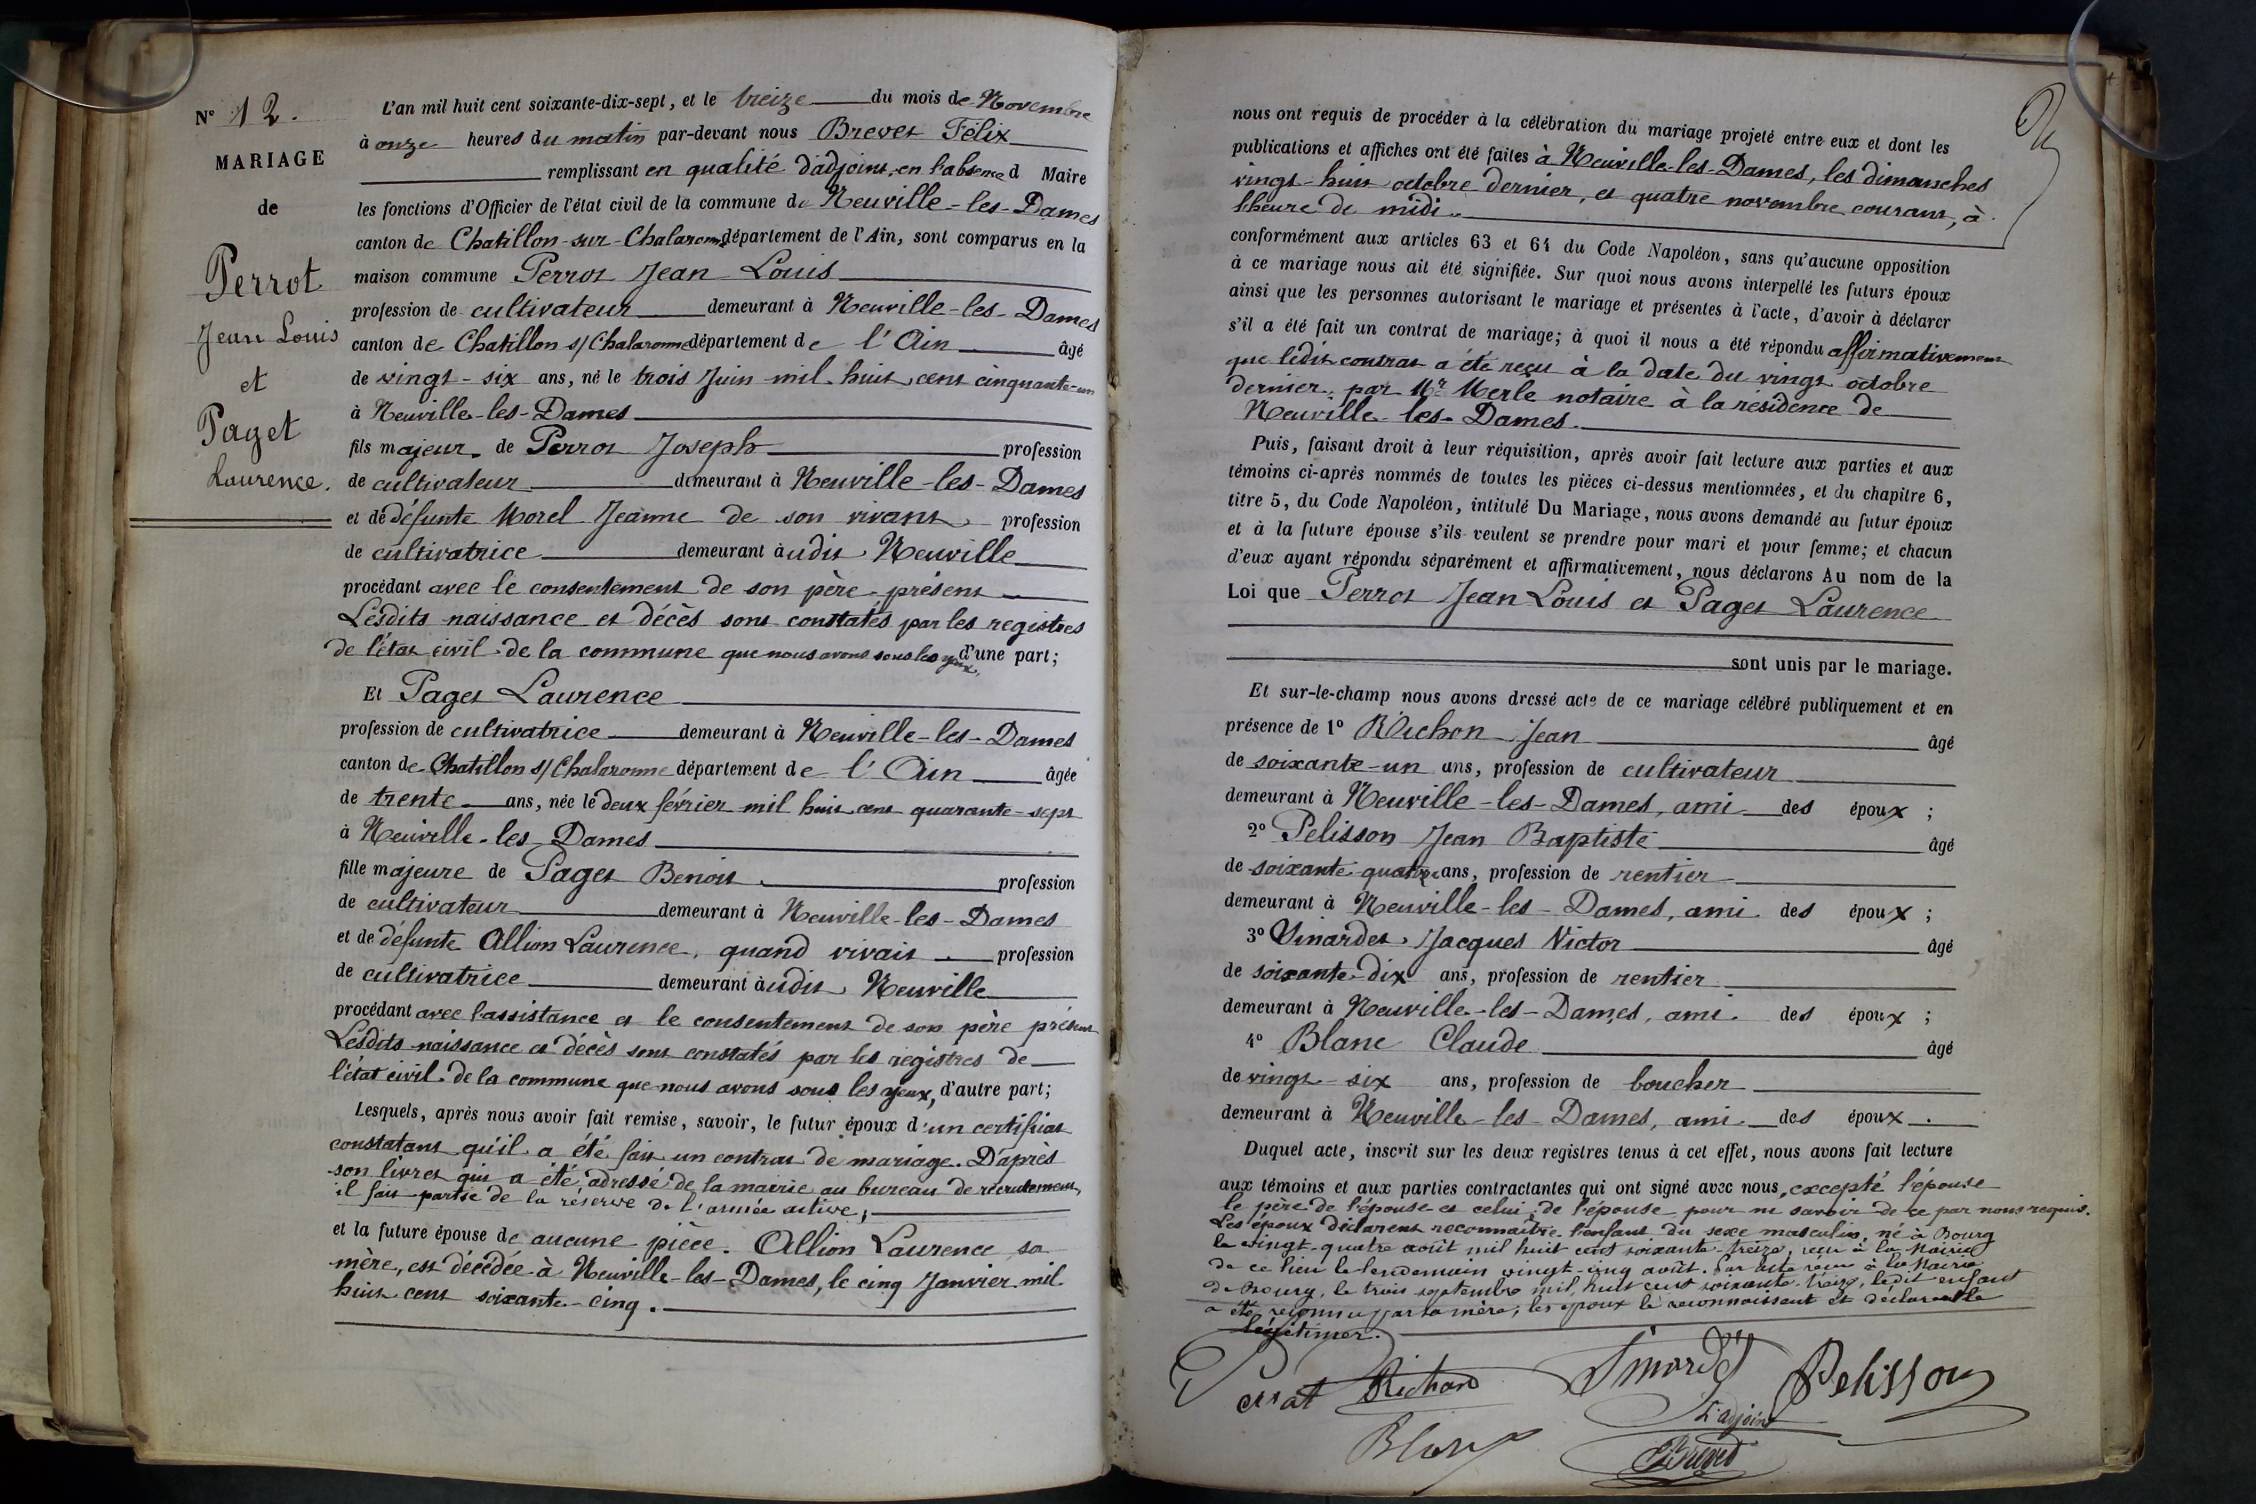 N° 12.
MARIAGE
de
Perrot
Jean Louis
et
Paget
Laurence.
L'an mil huit cent soixante-dix-sept, et le treize du mois de Novembre
à onze heures du matin par-devant nous Brevet Félix
remplissant en qualité d'adjoint, en l'absence d Maire
les fonctions d'Officier de l'état civil de la commune de Neuville-les-Dames
canton de Chatillon-sur-Chalaronne département de l'Ain, sont comparus en la
maison commune Perrot Jean Louis
profession de cultivateur demeurant à Neuville-les-Dames
canton de Chatillon s/Chalaronne département de l'Ain âgé
de vingt-six ans, né le trois Juin mil huit cent cinquante-un
à Neuville-les-Dames
fils majeur de Perrot Joseph profession
de cultivateur demeurant à Neuville-les-Dames
et de défunte Morel Jeanne de son vivant profession
de cultivatrice demeurant à udit Neuville
procédant avec le consentement de son père présent
Lesdits naissance et décès sont constatés par les registres
de l'état civil de la commune que nous avons sous les yeux, d'une part;
Et Paget Laurence
profession de cultivatrice demeurant à Neuville-les-Dames
canton de Chatillon s/Chalaronne département de l'Ain âgée
de trente ans, née le deux février mil huit cent quarante-sept
à Neuville-les-Dames
fille majeure de Paget Benoit profession
de cultivateur demeurant à Neuville-les-Dames
et de défunte Allion Laurence, quand vivait profession
de cultivatrice demeurant à udit Neuville
procédant avec l'assistance et le consentement de son père présent
Lesdits naissance et décès sont constatés par les registres de
l'état civil de la commune que nous avons sous les yeux, d'autre part;
Lesquels, après nous avoir fait remise, savoir, le futur époux d'un certificat
constatant qu'il a été fait un contrat de mariage. D'après
son livret qui a été adressé de la mairie au bureau de recrutement,
il fait partie de la réserve de l'armée active;
et la future épouse de aucune pièce. Allion Laurence sa
mère, est décédée à Neuville-les-Dames, le cinq Janvier mil
huit cent soixante-cinq.
nous ont requis de procéder à la célébration du mariage projeté entre eux et dont les
publications et affiches ont été faites à Neuville-les-Dames, les dimanches
vingt-huit octobre dernier, et quatre novembre courant, à
l'heure de midi.
conformément aux articles 63 et 64 du Code Napoléon, sans qu'aucune opposition
à ce mariage nous ait été signifiée. Sur quoi nous avons interpellé les futurs époux
ainsi que les personnes autorisant le mariage et présentes à l'acte, d'avoir à déclarer
s'il a été fait un contrat de mariage; à quoi il nous a été répondu affirmativement
que ledit contrat a été reçu à la date du vingt octobre
dernier, par Mr Merle notaire à la résidence de
Neuville-les-Dames.
Puis, faisant droit à leur réquisition, après avoir fait lecture aux parties et aux
témoins ci-après nommés de toutes les pièces ci-dessus mentionnées, et du chapitre 6,
titre 5, du Code Napoléon, intitulé Du Mariage, nous avons demandé au futur époux
et à la future épouse s'ils veulent se prendre pour mari et pour femme; et chacun
d'eux ayant répondu séparément et affirmativement, nous déclarons Au nom de la
Loi que Perrot Jean Louis et Paget Laurence
sont unis par le mariage.
Et sur-le-champ nous avons dressé acte de ce mariage célébré publiquement et en
présence de 1° Richon Jean âgé
de soixante-un ans, profession de cultivateur
demeurant à Neuville-les-Dames, ami des époux ;
2° Pelisson Jean Baptiste âgé
de soixante quatre ans, profession de rentier
demeurant à Neuville-les-Dames, ami des époux ;
3° Sinardet Jacques Victor âgé
de soixante-dix ans, profession de rentier
demeurant à Neuville-les-Dames, ami des époux ;
4° Blanc Claude âgé
de vingt-six ans, profession de boucher
demeurant à Neuville-les-Dames, ami des époux.
Duquel acte, inscrit sur les deux registres tenus à cet effet, nous avons fait lecture
aux témoins et aux parties contractantes qui ont signé avec nous, excepté l'épouse
le père de l'épouse et celui de l'épouse pour ne savoir de ce par nous requis.
Les époux déclarent reconnaître l'enfant du sexe masculin, né à Bourg
le vingt-quatre août mil huit cent soixante-treize, reçu à la Mairie
de ce lieu le lendemain vingt-cinq août. Par acte reçu à la Mairie
de Bourg, le trois septembre mil huit cent soixante-treize, ledit enfant
a été reconnu par sa mère; les époux le reconnaissent et déclarent le
légitimer.
Perrat Richon Sinardet Pelisson
L'adjoint
Blanc Brevet